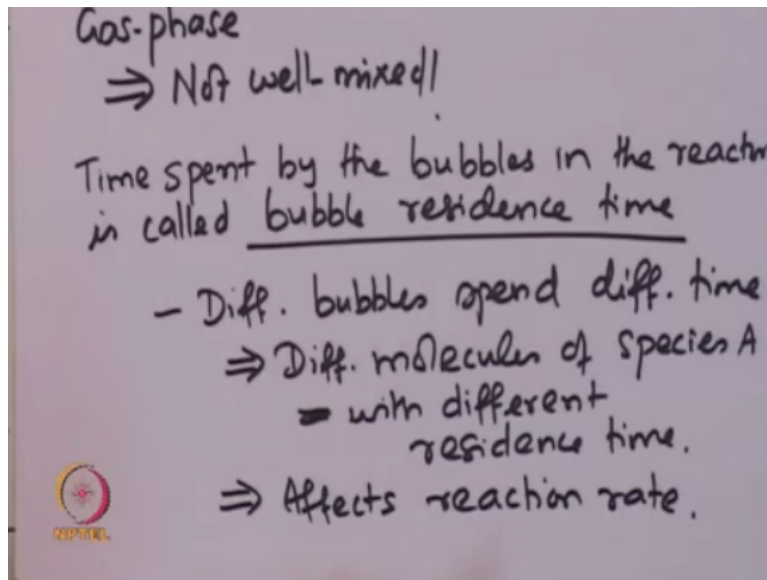 Gas-phase
⇒ Not well mixed!
Time spent by the bubbles in the reactor
is called bubble residence time
- Diff. bubbles spend diff. time
⇒ Diff. molecules of species A
- with different
residence time.
⇒ Affects reaction rate.
NPTEL